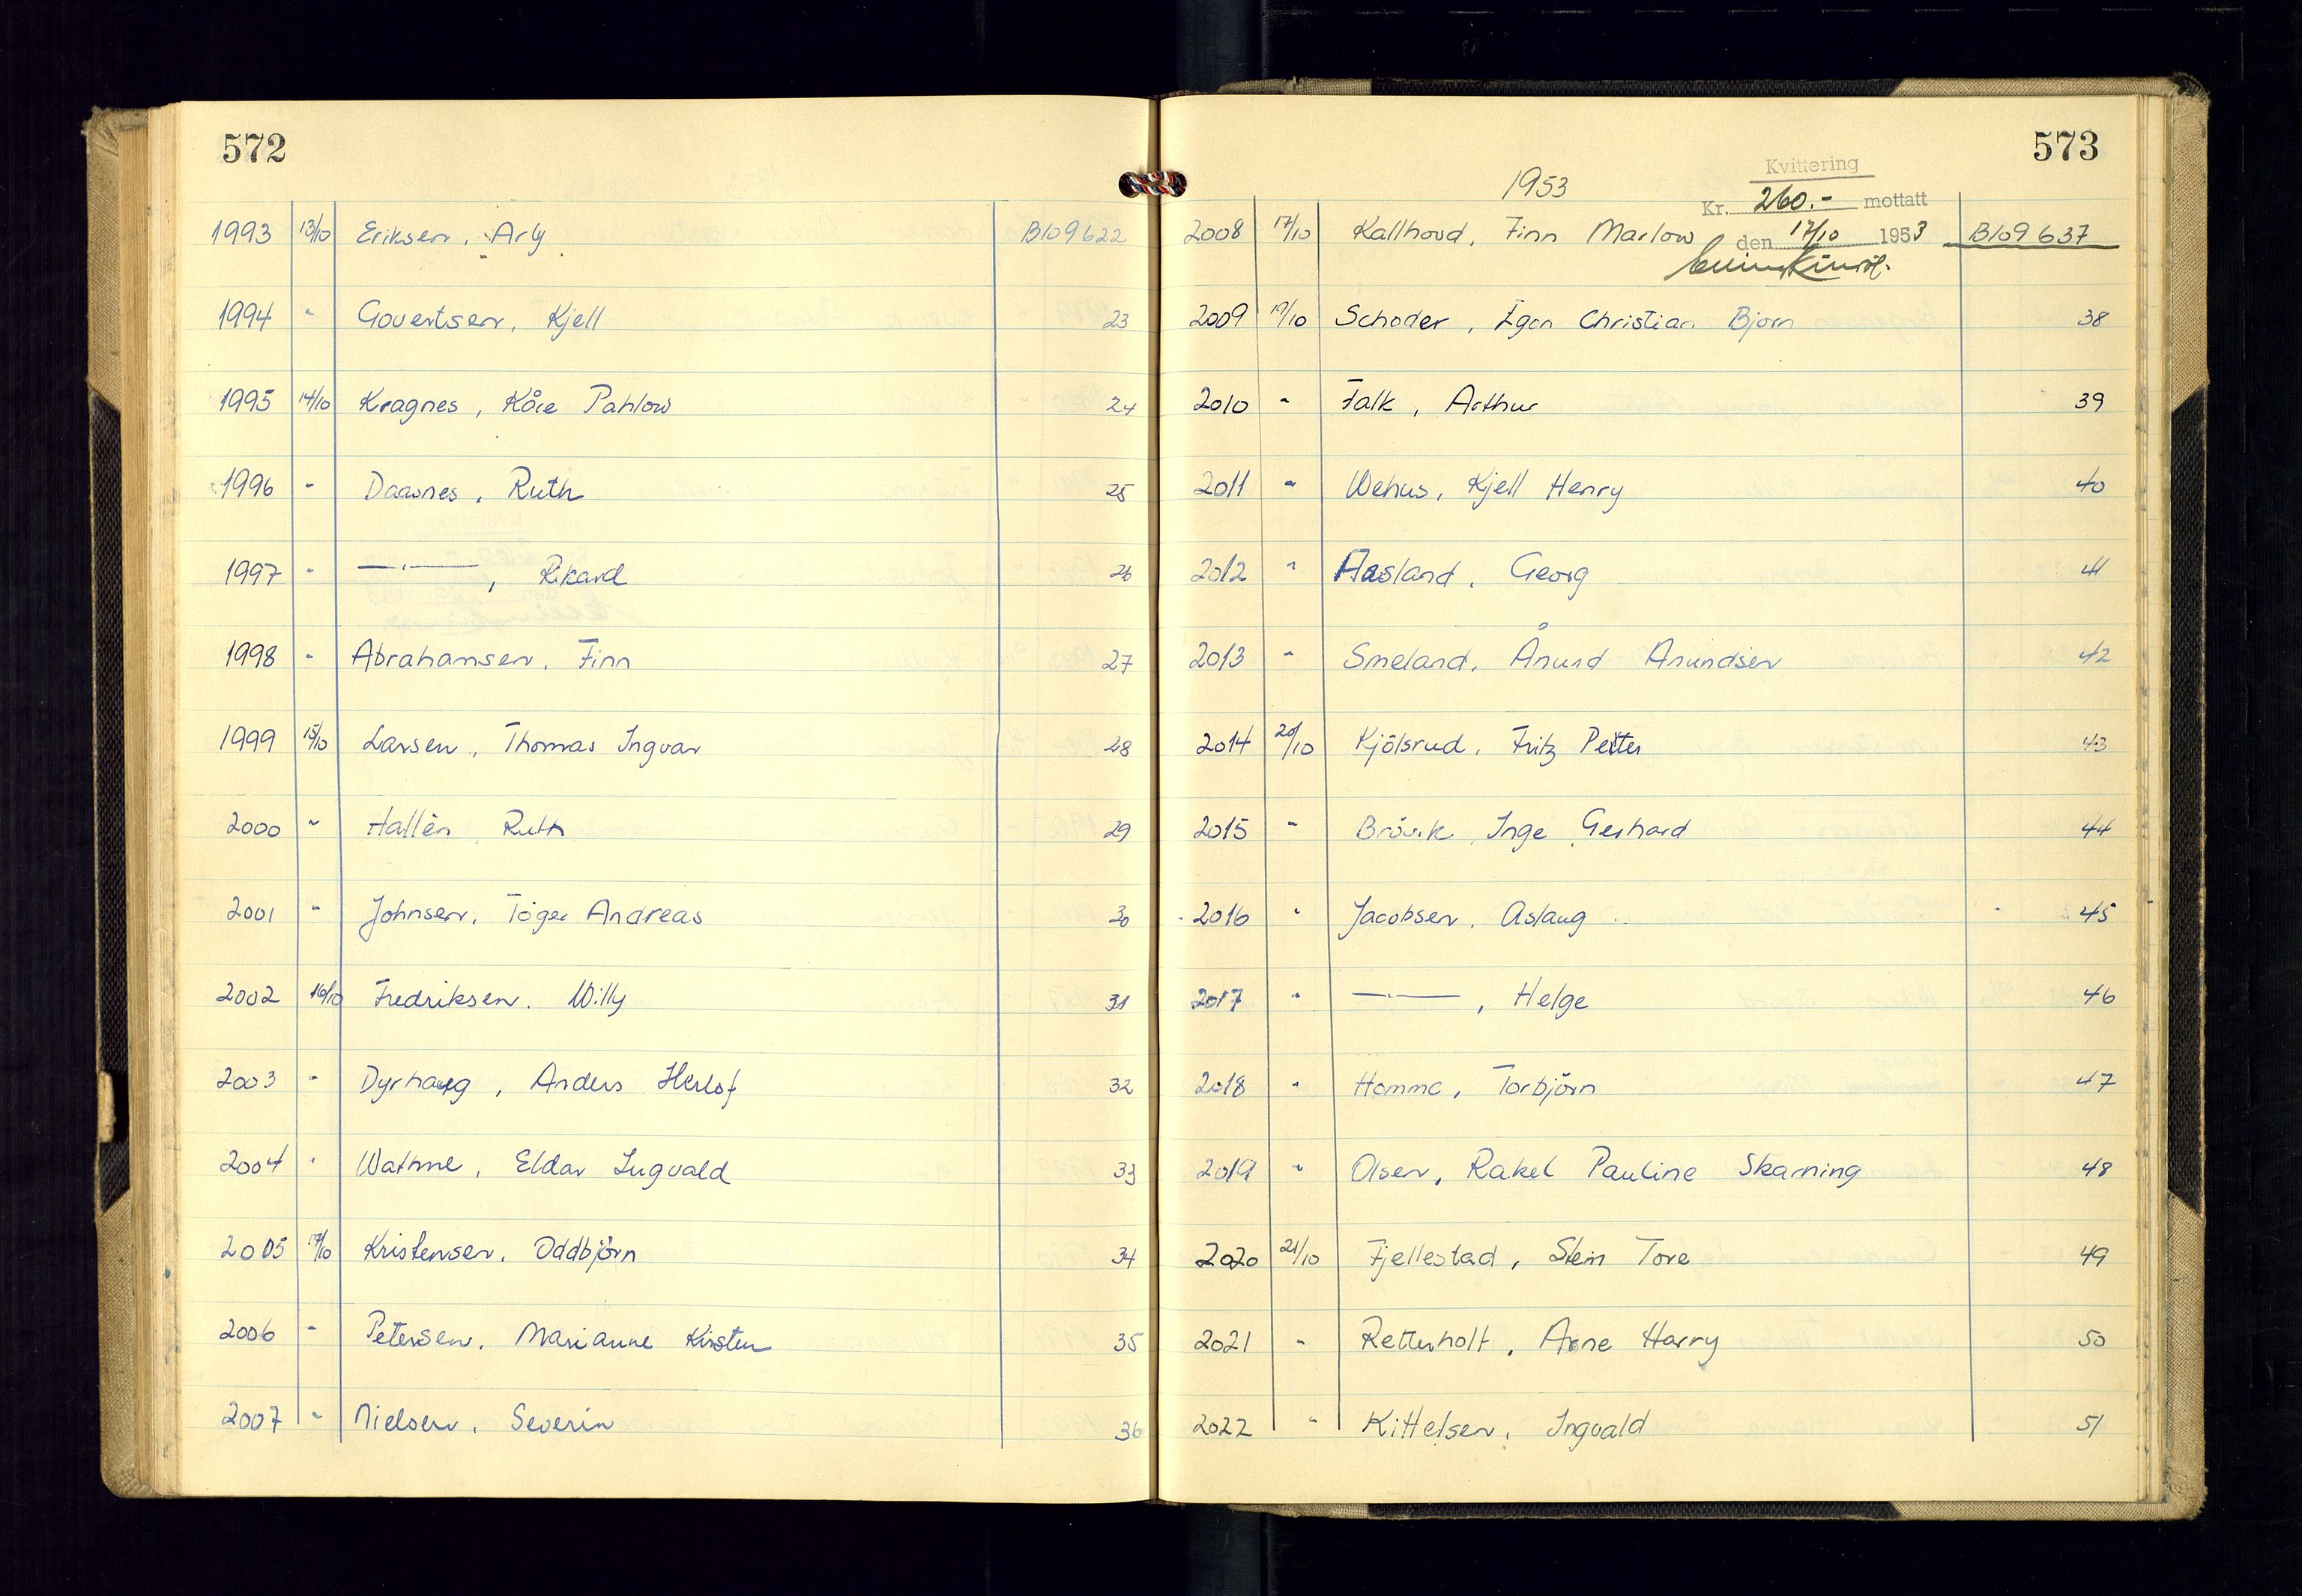 572
1993 13/10 Eriksen, Arly B109622
1994 " Govertsen, Kjell 23
1995 14/10 Kragnes, Kåre Pahlow 24
1996 " Daasnes, Ruth 25
1997 " —"—, Rikard 26
1998 " Abrahamsen, Finn 27
1999 15/10 Larsen, Thomas Ingvar 28
2000 " Hallén, Ruth 29
2001 " Johnsen, Töger Andreas 30
2002 16/10 Fredriksen, Willy 31
2003 " Dyrhaug, Anders Herlof 32
2004 " Wathne, Eldar Ingvald 33
2005 17/10 Kristensen, Oddbjörn 34
2006 " Petersen, Marianne Kirsten 35
2007 " Nielsen, Severin 36
573
1953
Kvittering
Kr. 260.- mottatt
den 17/10 1953
2008 17/10 Kallhovd, Finn Marlow B109637
2009 19/10 Schoder, Egon Christian Bjorn 38
2010 " Falk, Arthur 39
2011 " Wehus, Kjell Henry 40
2012 " Aasland, Georg 41
2013 " Smeland, Ånund Anundsen 42
2014 20/10 Kjölsrud, Fritz Petter 43
2015 " Brövik, Inge Gerhard 44
2016 " Jacobsen, Aslaug 45
2017 " —"—, Helge 46
2018 " Homme, Torbjörn 47
2019 " Olsen, Rakel Pauline Skarning 48
2020 21/10 Fjellestad, Stein Tore 49
2021 " Retterholt, Arne Harry 50
2022 " Kittelsen, Ingvald 51